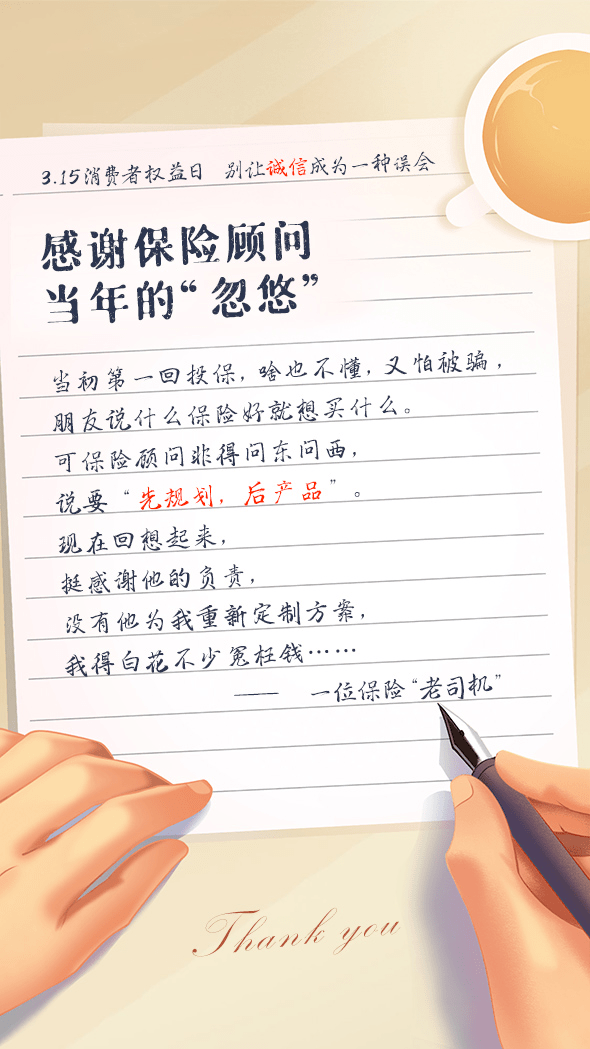 3.15消费者权益日 别让诚信成为一种误会
感谢保险顾问
当年的“忽悠”
当初第一回投保，啥也不懂，又怕被骗，
朋友说什么保险好就想买什么。
可保险顾问非得问东问西，
说要“先规划，后产品”。
现在回想起来，
挺感谢他的负责，
没有他为我重新定制方案，
我得白花不少冤枉钱……
—— 一位保险“老司机”
Thank you